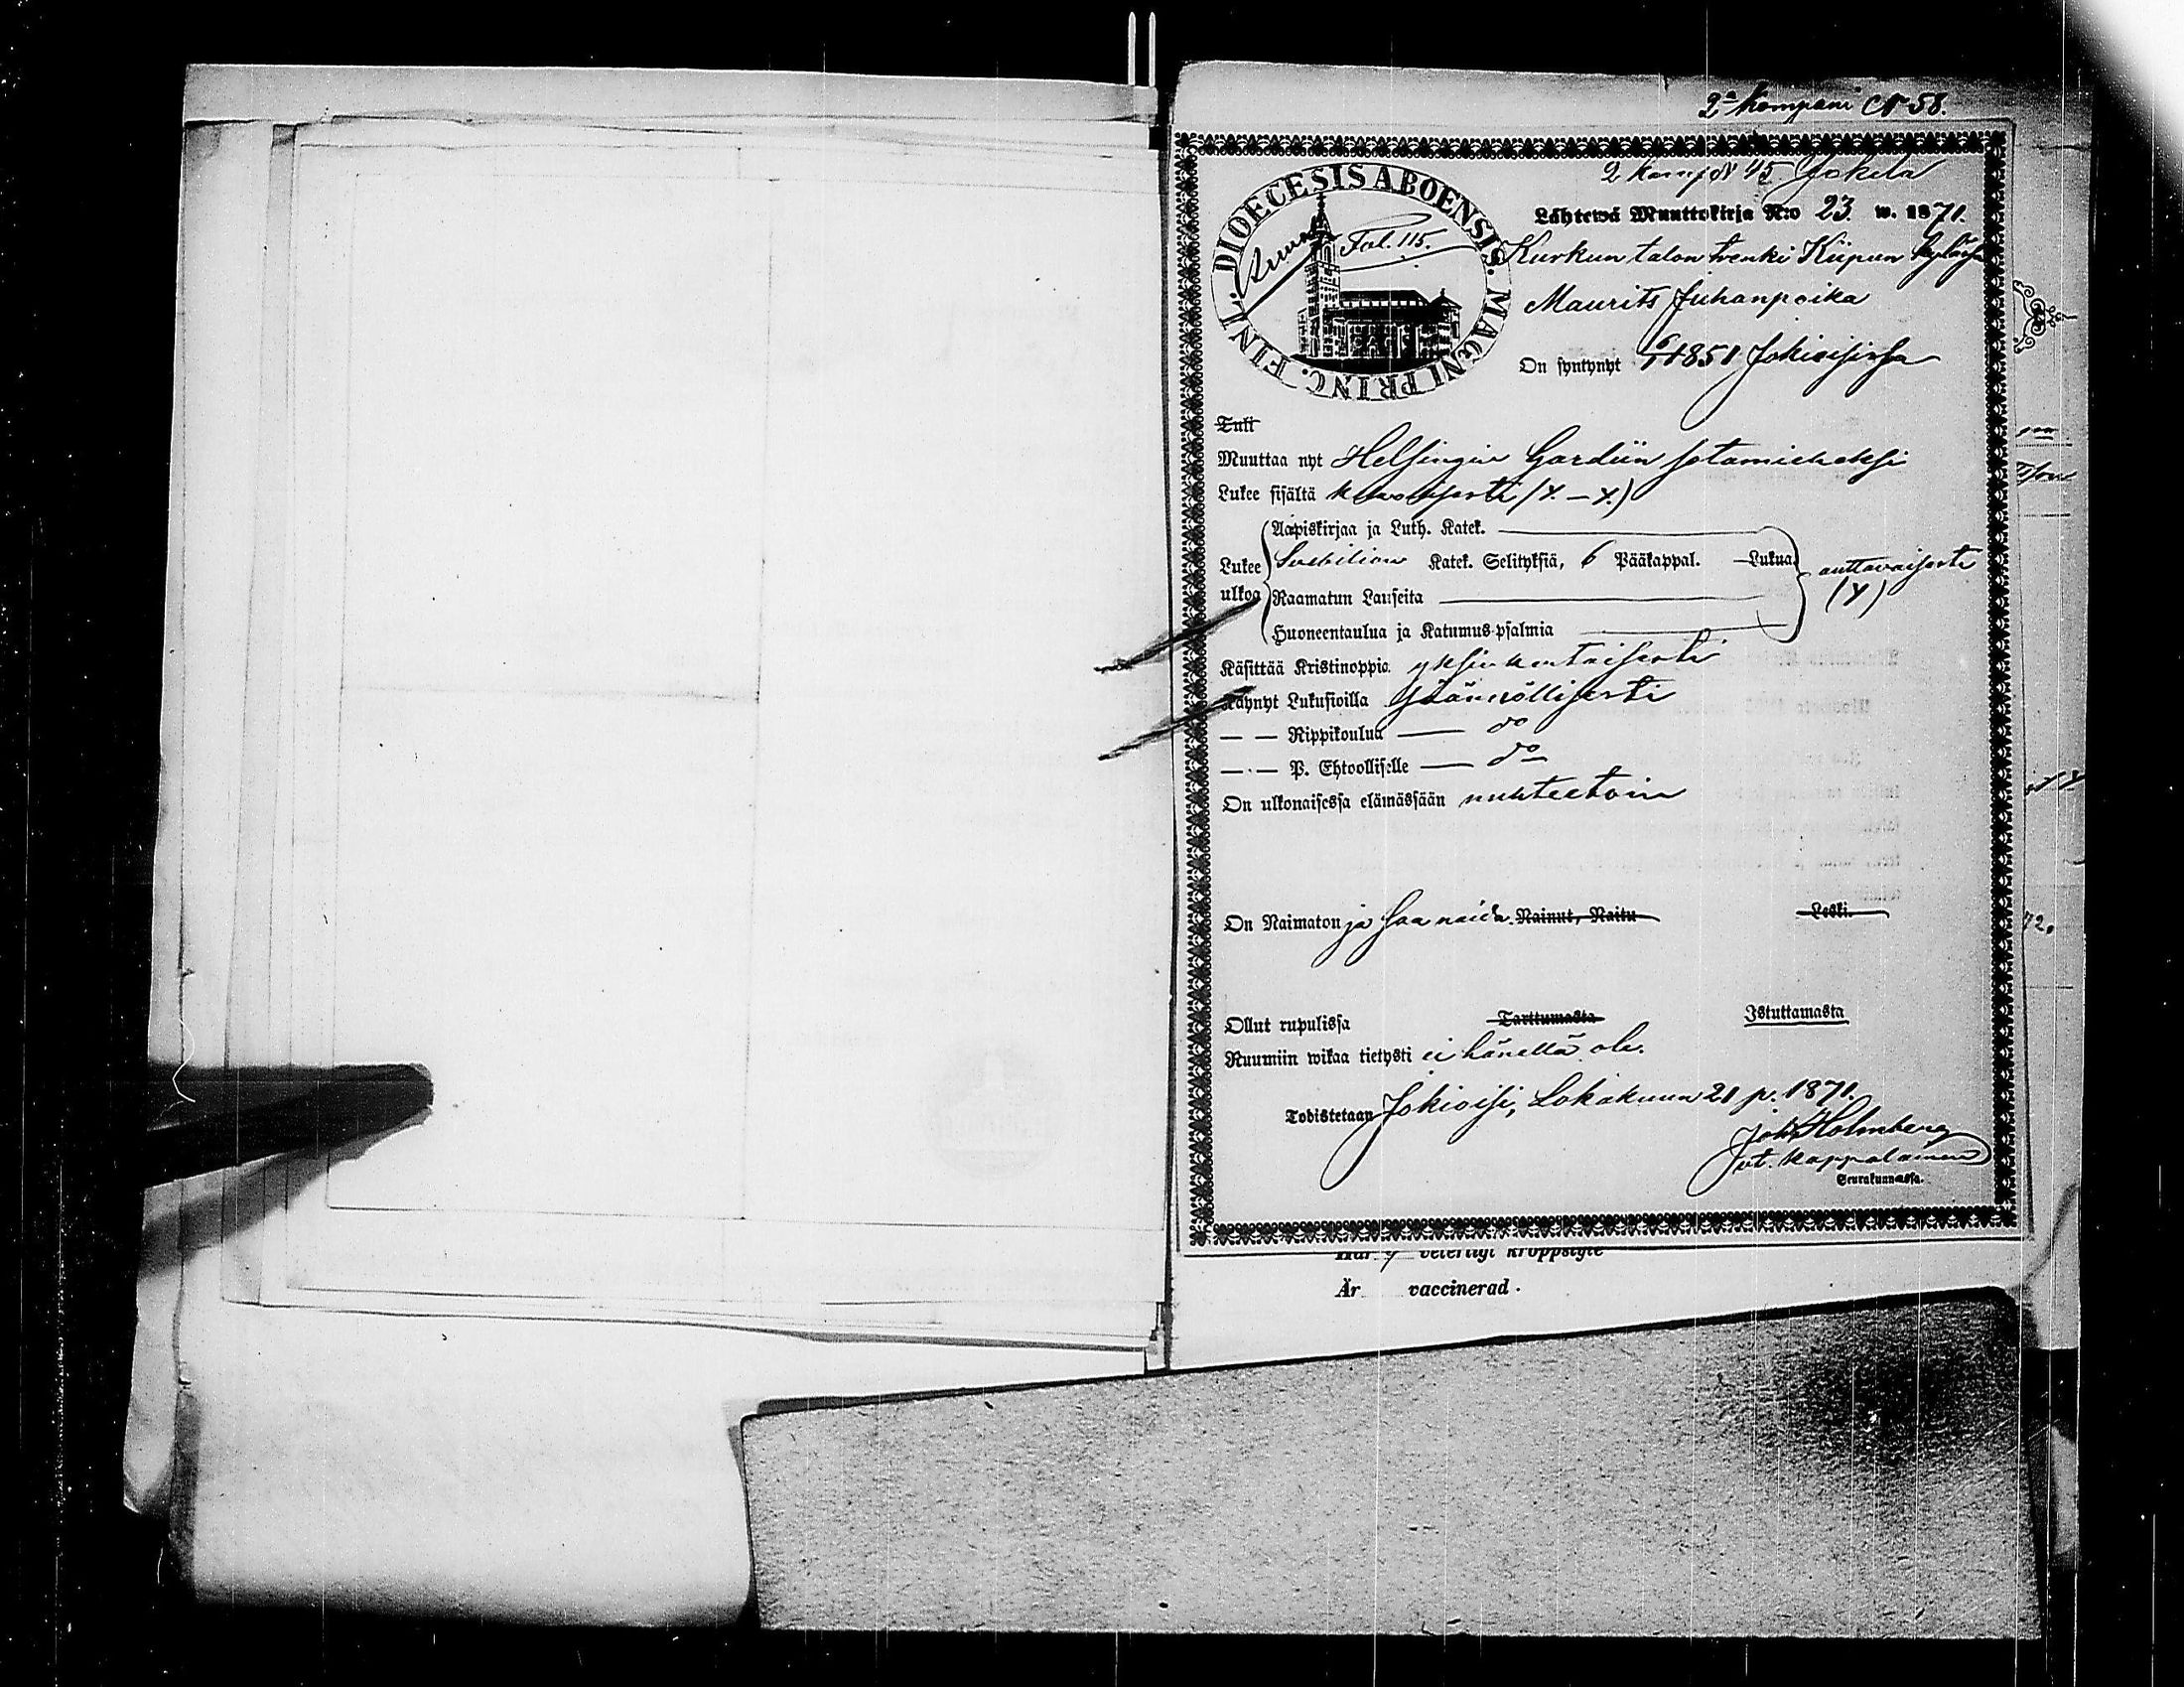 2a Kompani No 58.
2 Komp N 45 Jokela
DIOECESIS ABOENSIS. MAGNI PRINC. FINL.
Fol. 115.
Lähtewä Muuttokirja N:o 23 w. 1871.
Kurkun talon trenki Kiipun kylästä
Maurits Juhanpoika
On syntynyt 1851 Jokioisissa
Tuli
Muuttaa nyt Helsingin Gardiin sotamieheksi
Lukee sisältä
Aapiskirjaa ja Luth. Katek.
Lukee ulkoa Svebilion Katek. Selityksiä, 6 Pääkappal. Lukua. auttavaisesti
Raamatun Lauseita (Y)
Huoneentaulua ja Katumus-psalmia
Käsittää Kristinoppia yksinkertaisesti
Käynyt Lukusioilla säännöllisesti
— — Rippikoulua — do
— — P. Ehtoolliselle — do
On ulkonaisessa elämässään nuhteetoin
On Naimaton ja saa naida. Nainut, Naitu Leski.
Ollut rupulissa Tarttumasta Istuttamasta
Ruumiin wikaa tietysti ei hänellä ole.
Todistetaan Jokioisi, Lokakuun 21 p. 1871.
Joh. Holmberg
vt. Kappalainen
Seurakunnassa.
Har ej veterligt kroppslyte
Är vaccinerad.
72.